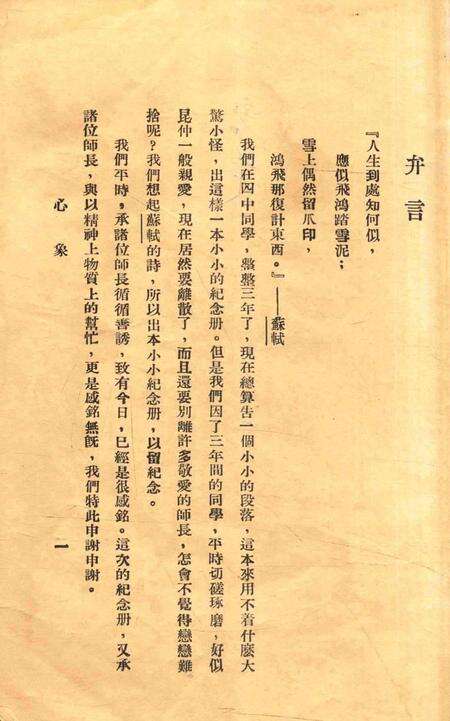 弁言
『人生到處知何似，
應似飛鴻踏雪泥；
雪上偶然留爪印，
鴻飛那復計東西。』——蘇軾
我們在四中同學，整整三年了，現在總算告一個小小的段落，這本來用不着什麽大
驚小怪，出這樣一本小小的紀念册。但是我們因了三年間的同學，平時切磋琢磨，好似
昆仲一般親愛，現在居然要離散了，而且還要別離許多敬愛的師長，怎會不覺得戀戀難
捨呢？我們想起蘇軾的詩，所以出本小小紀念册，以留紀念。
我們平時，承諸位師長循循善誘，致有今日，已經是很感銘。這次的紀念册，又承
諸位師長，與以精神上物質上的幫忙，更是感銘無旣，我們特此申謝申謝。
心象
一